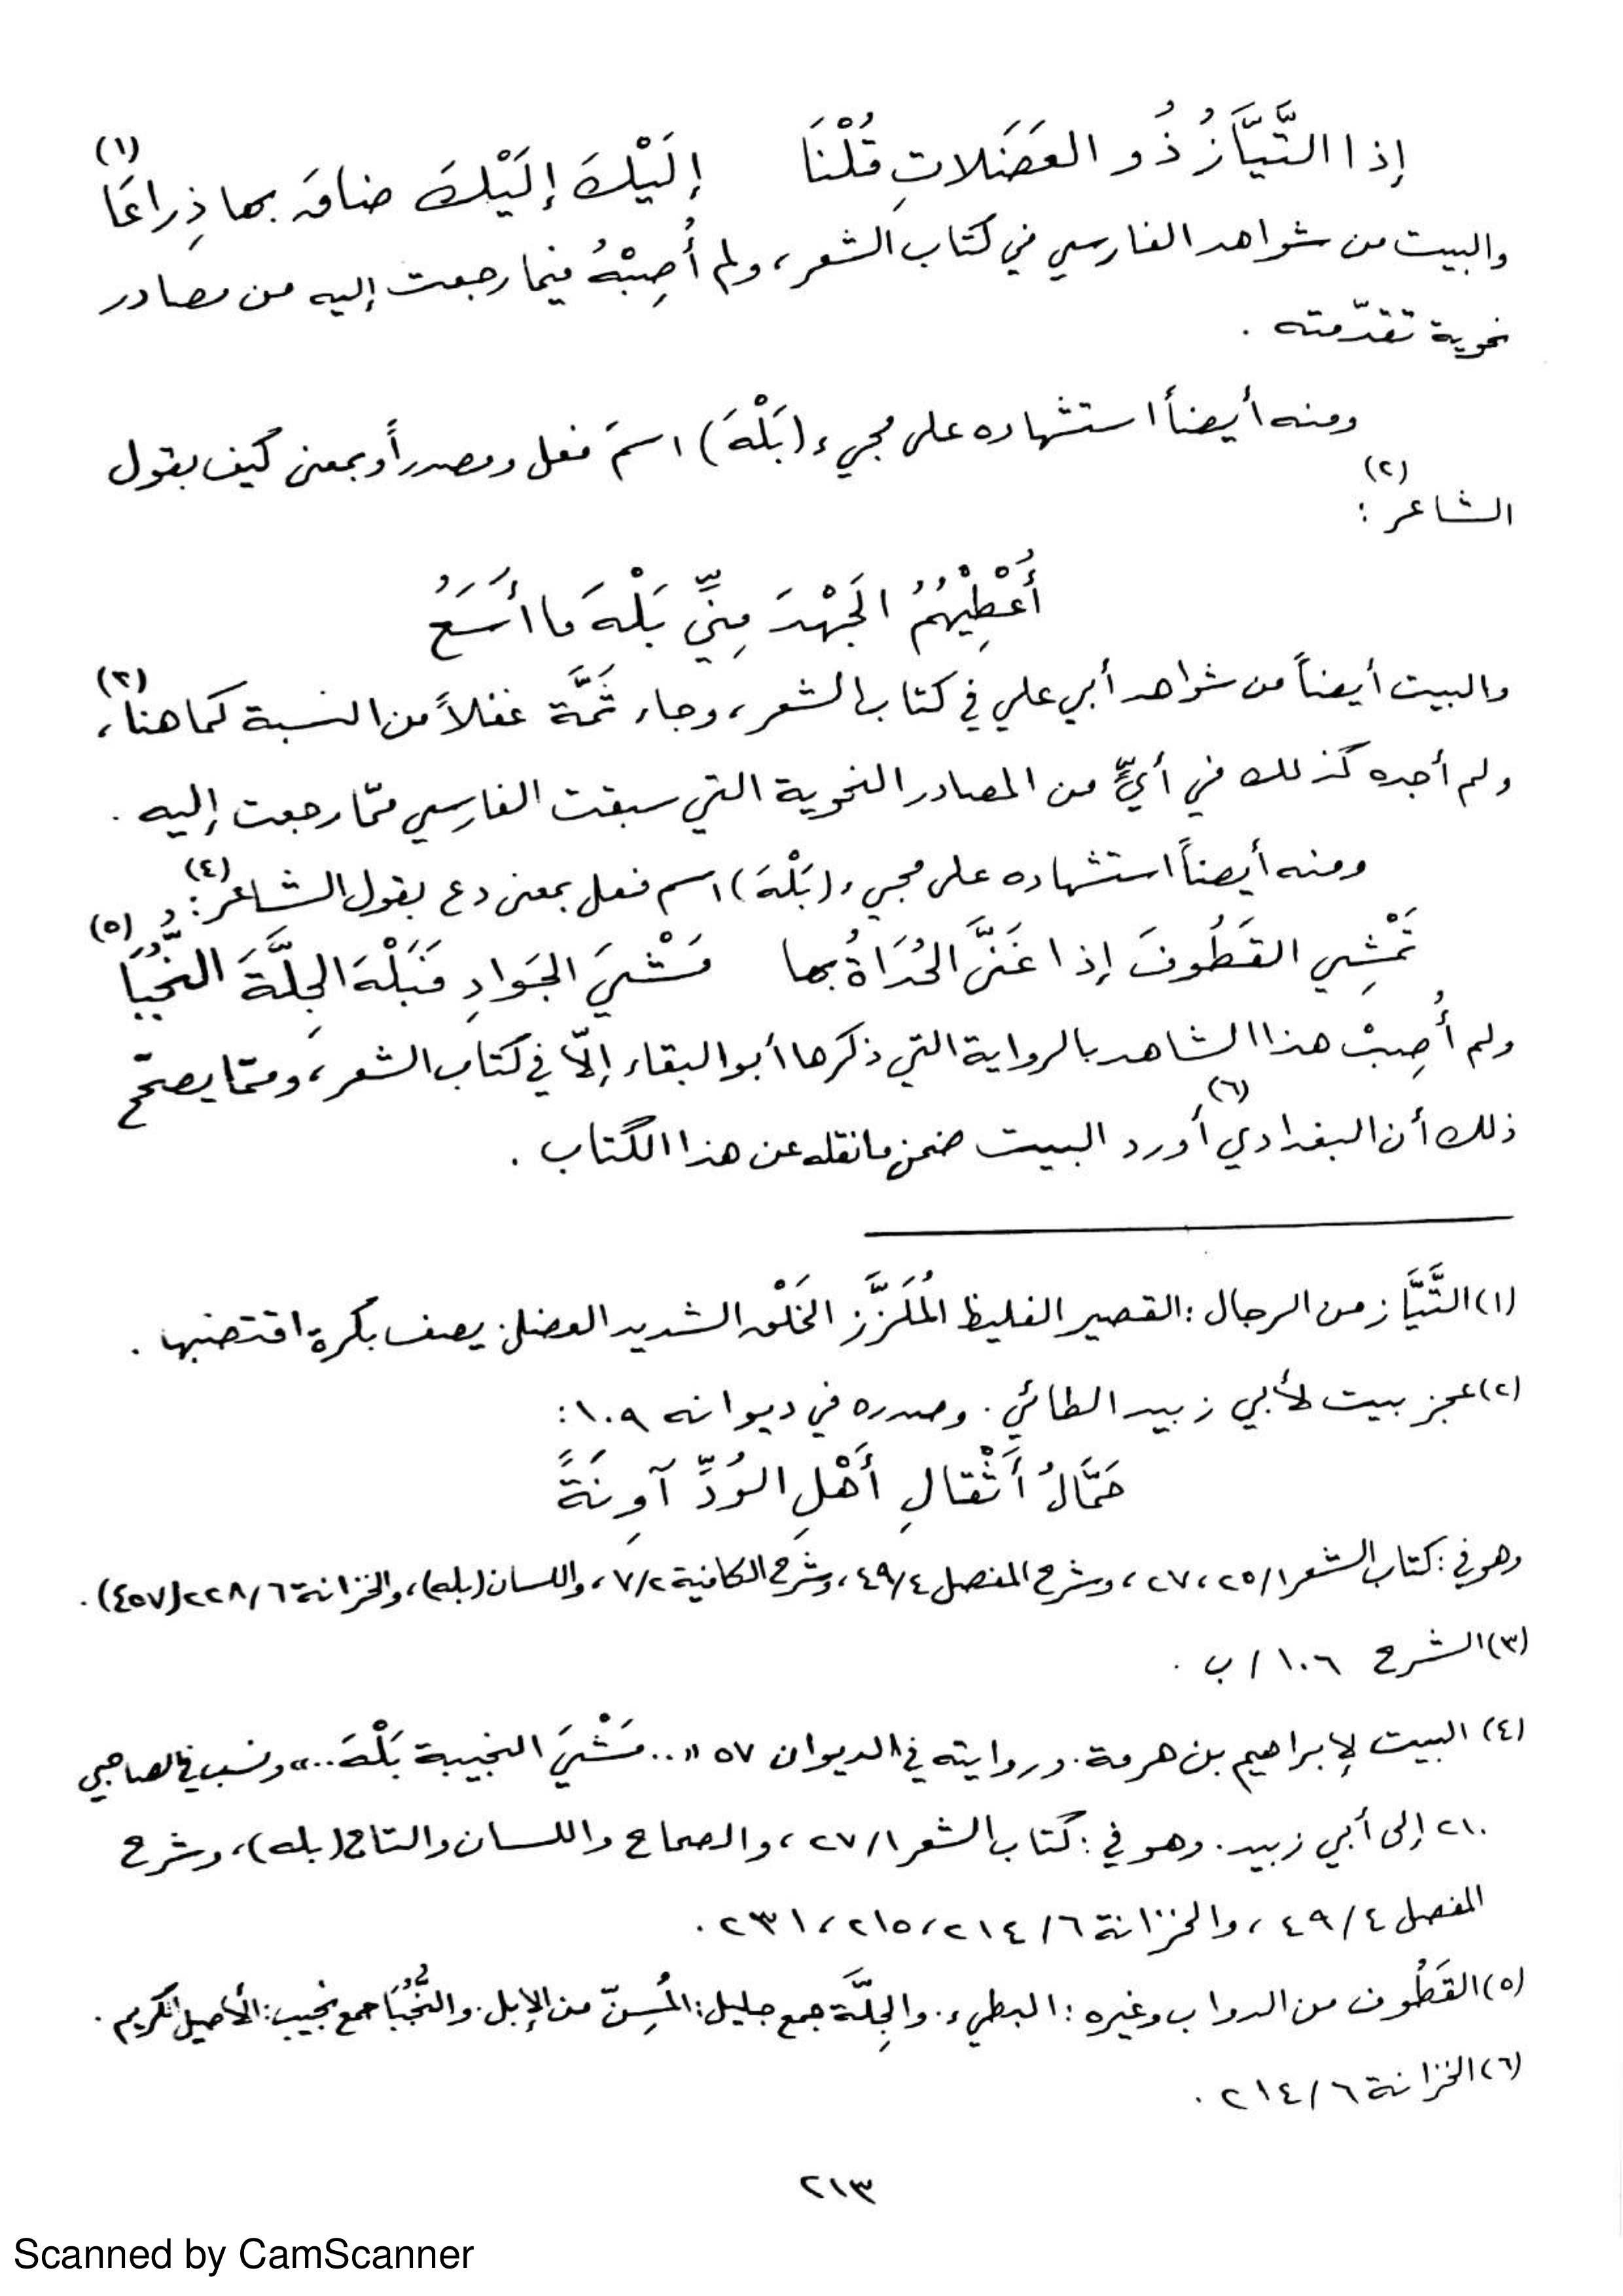 إذا التَّيَّازُ ذُو العَضَلاتِ قُلْنَا إِلَيْكَ إِلَيْكَ ضاقَ بها ذِراعَا (١)
والبيت من شواهد الفارسي في كتاب الشعر، ولم أُصِبْهُ فيما رجعت إليه من مصادر
نحوية تقدّمته .
ومنه أيضاً استشهاده على مجيء (بَلْهَ) اسمَ فعل ومصدراً وبمعنى كيف بقول
الشاعر (٢) :
أُعْطِيْهُمُ الجَهْدَ مِنِّي بَلْهَ ما أَسَعُ
والبيت أيضاً من شواهد أبي علي في كتاب الشعر، وجاء ثَمَّة غفلاً من النسبة كما هنا (٣)،
ولم أجده كذلك في أيٍّ من المصادر النحوية التي سبقت الفارسي ممّا رجعت إليه .
ومنه أيضاً استشهاده على مجيء (بَلْهَ) اسم فعل بمعنى دع بقول الشاعر (٤) :
تَمْشِي القَطُوفَ إذا غَنَّى الحُدَاةُ بها مَشْيَ الجَوَادِ فَبَلْهَ الجِلَّةَ النُّجُبَا (٥)
ولم أُصِبْ هذا الشاهد بالرواية التي ذكرها أبو البقاء إلّا في كتاب الشعر، وممّا يصحّح
ذلك أن البغدادي (٦) أورد البيت ضمن ما نقله عن هذا الكتاب .
(١) التَّيَّاز من الرجال : القصير الغليظ المُلَزَّز الخَلْق الشديد العضل. يصف بكرة اقتضبها .
(٢) عجز بيت لأبي زبيد الطائي . وصدره في ديوانه ١٠٩ :
حَمَّالُ أَثْقالِ أَهْلِ الوُدِّ آوِنَةً
وهو في : كتاب الشعر ٢٥/١، ٢٧، وشرح المفصل ٤٩/٤، وشرح الكافية ٧/٢، واللسان (بله)، والخزانة ٢٢٨/٦ (٤٥٧) .
(٣) الشرح ١٠٦ / ب .
(٤) البيت لإبراهيم بن هرمة. وروايته في الديوان ٥٧ «.. مَشْيَ النجيبة بَلْهَ ..» ونسب في الصاحبي
٢١٠ إلى أبي زبيد. وهو في : كتاب الشعر ٢٧/١، والصحاح واللسان والتاج (بله)، وشرح
المفصل ٤٩/٤، والخزانة ٢١٤/٦، ٢١٥، ٢٣١ .
(٥) القَطُوف من الدواب وغيره : البطيء. والجِلَّة جمع جليل : المُسِنّ من الإبل. والنُّجُبَا جمع نجيب : الأصيل الكريم .
(٦) الخزانة ٢١٤/٦ .
٢١٣
Scanned by CamScanner